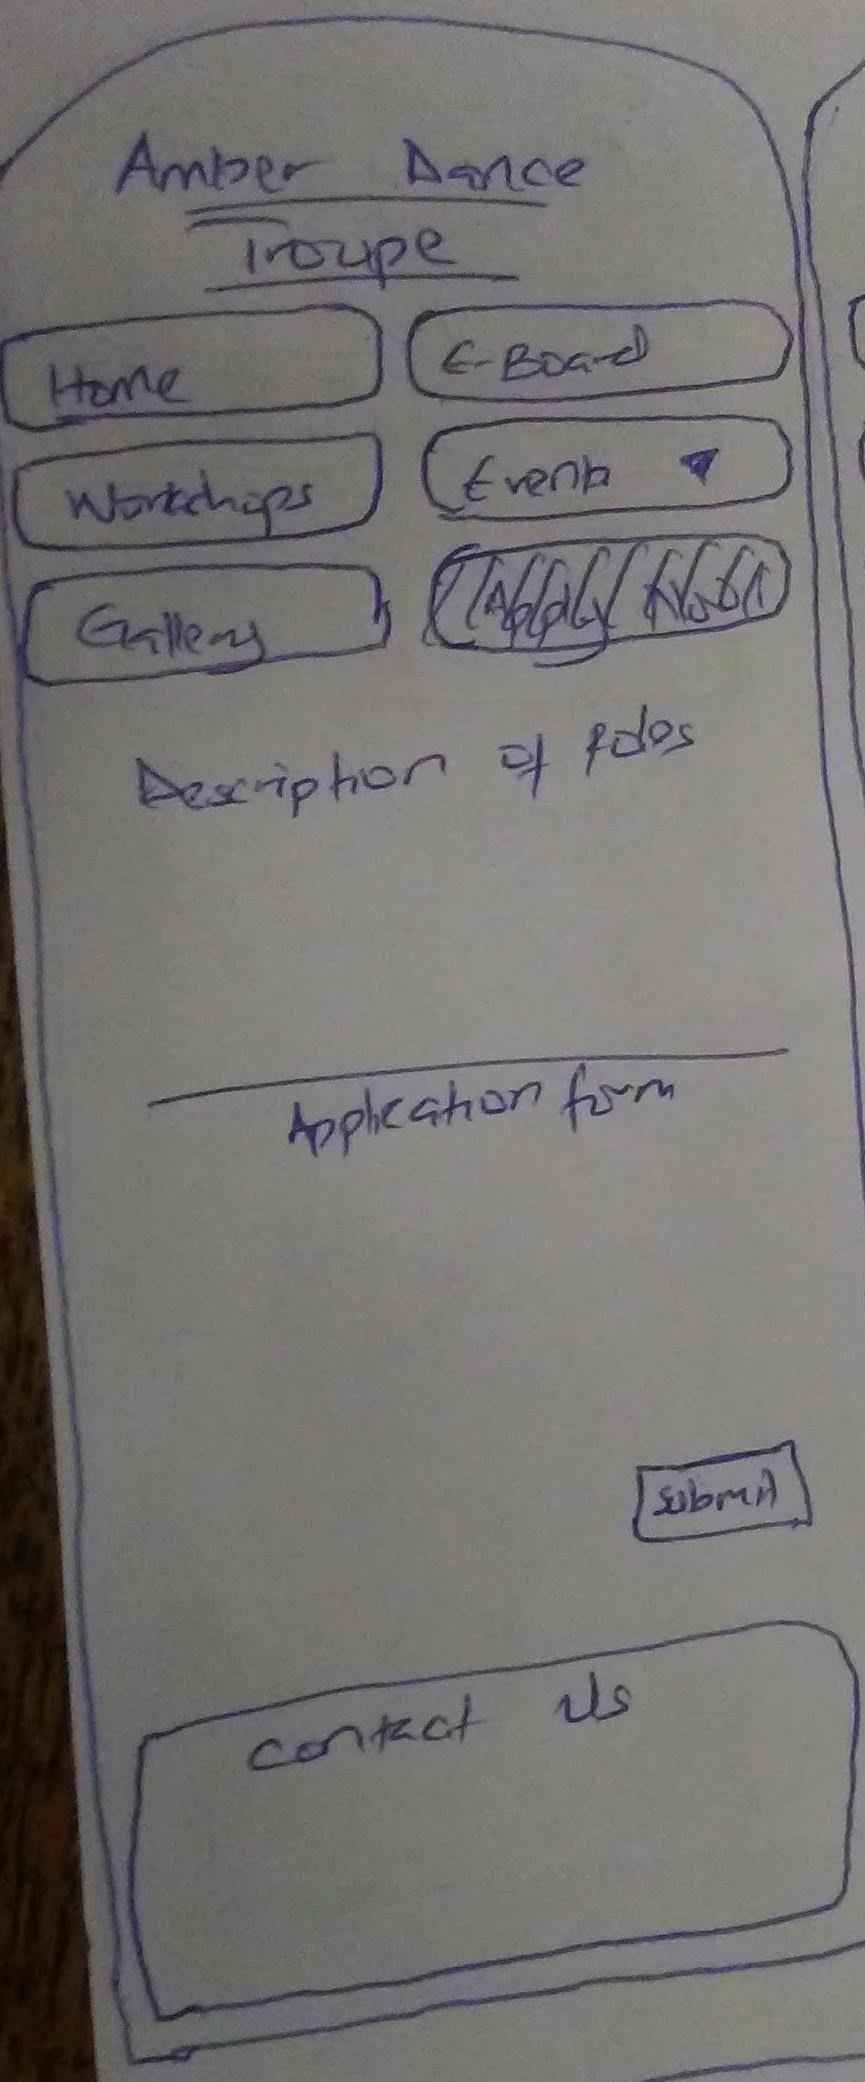 Amber Dance
Troupe
Home
E-Board
Workshops
Events
Gallery
Apply Now
Description of Roles
Application form
Submit
Contact Us